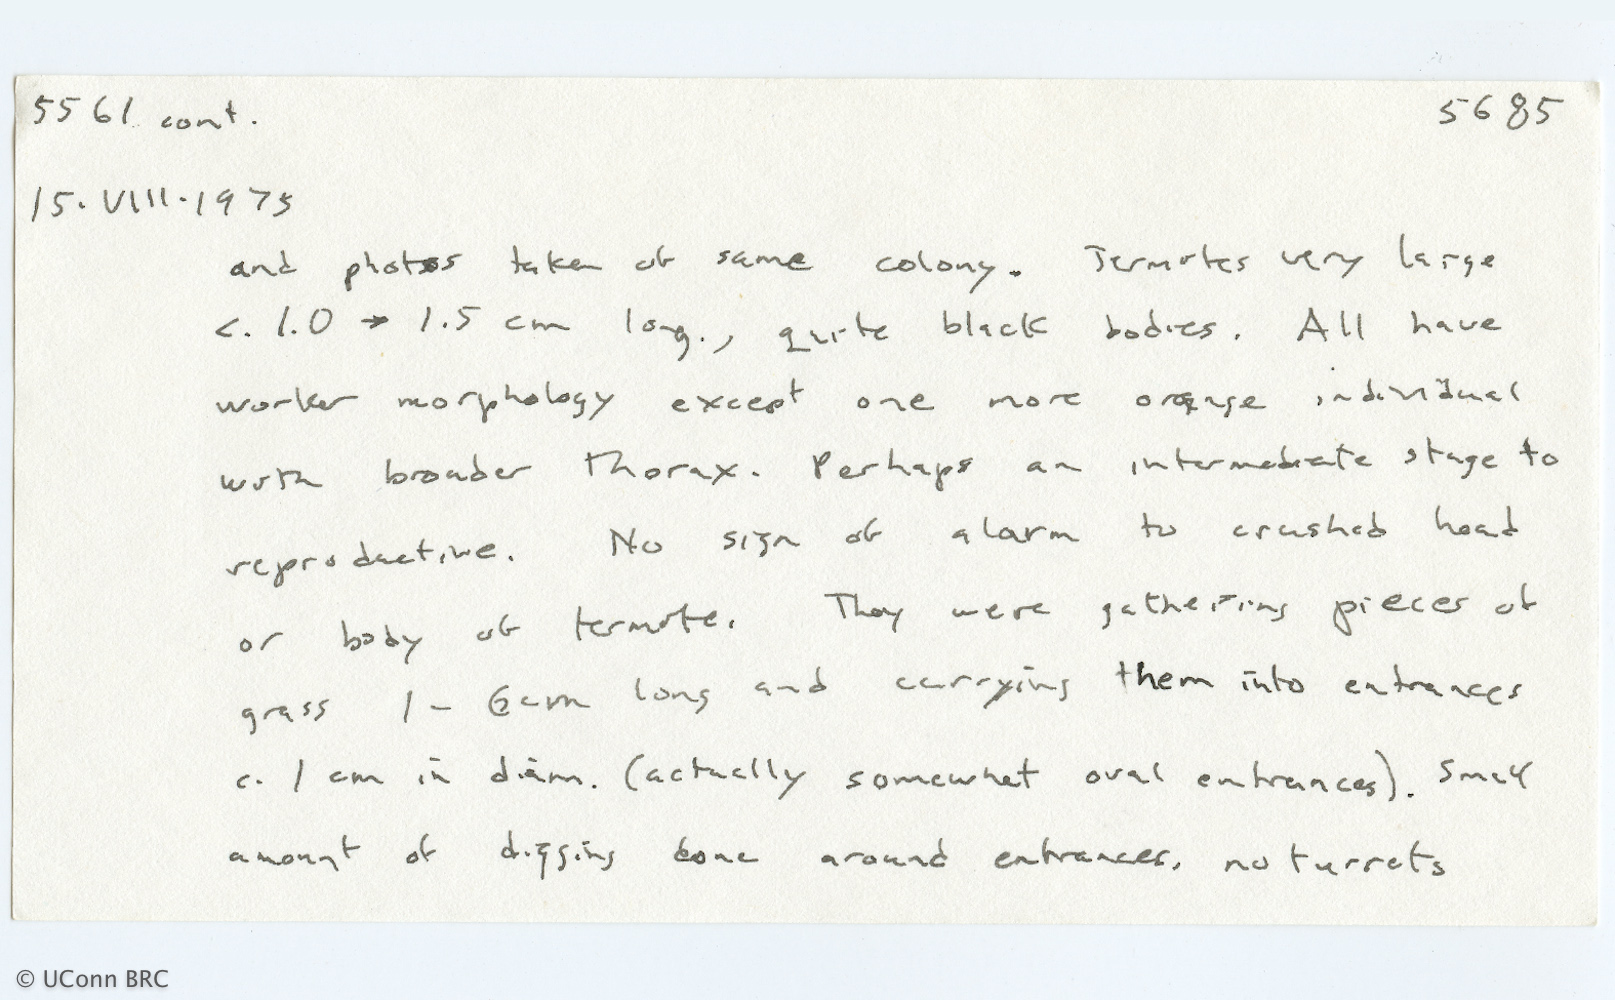 5561 cont. 5685
15.VIII.1975
and photos taken of same colony. Termites very large
c. 1.0 → 1.5 cm long., quite black bodies. All have
worker morphology except one more orange individual
with broader thorax. Perhaps an intermediate stage to
reproductive. No sign of alarm to crushed head
or body of termite. They were gathering pieces of
grass 1 - 6cm long and carrying them into entrances
c. 1 cm in diam. (actually somewhat oval entrances). Small
amount of digging done around entrances, no turrets
© UConn BRC